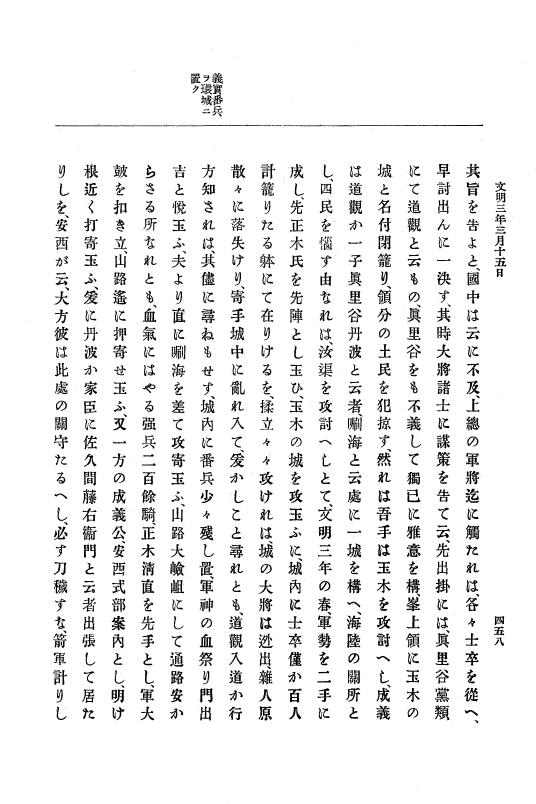 文明三年三月十五日
四五八
義實番兵
ヲ環城ニ
置ク
其旨を告よと、國中は云に不及、上總の軍將迄に觸たれは、各々士卒を從へ、
早討出んに一決す、其時大將諸士に謀策を告て云、先出掛には、眞里谷黨類
にて道觀と云もの、眞里谷をも不義して獨已に雅意を構、峯上領に玉木の
城と名付閉籠り、領分の土民を犯掠す、然れは吾手は玉木を攻討へし、成義
は道觀か一子眞里谷丹波と云者、唎海と云處に一城を構へ、海陸の關所と
し、四民を惱す由なれは、汝渠を攻討へしとて、文明三年の春、軍勢を二手に
成し、先正木氏を先陣とし玉ひ、玉木の城を攻玉ふに、城內に士卒僅か百人
計籠りたる躰にて在りけるを、揉立々々攻けれは、城の大將は迯出、雜人原
散々に落失けり、寄手城中に亂れ入て、爰かしこと尋れとも、道觀入道か行
方知されは、其儘に尋ねもせす、城內に番兵少々殘し置、軍神の血祭り門出
吉と悅玉ふ、夫より直に唎海を差て攻寄玉ふ、山路大嶮岨にして通路安か
らさる所なれとも、血氣にはやる强兵二百餘騎、正木清直を先手とし、軍大
皷を扣き立、山路遙に押寄せ玉ふ、又一方の成義公安西式部案內とし、明け
根近く打寄玉ふ、爰に丹波か家臣に佐久間藤右衞門と云者出張して居た
りしを、安西が云、大方彼は此處の關守たるへし、必す刀穢すな、箭軍計りし